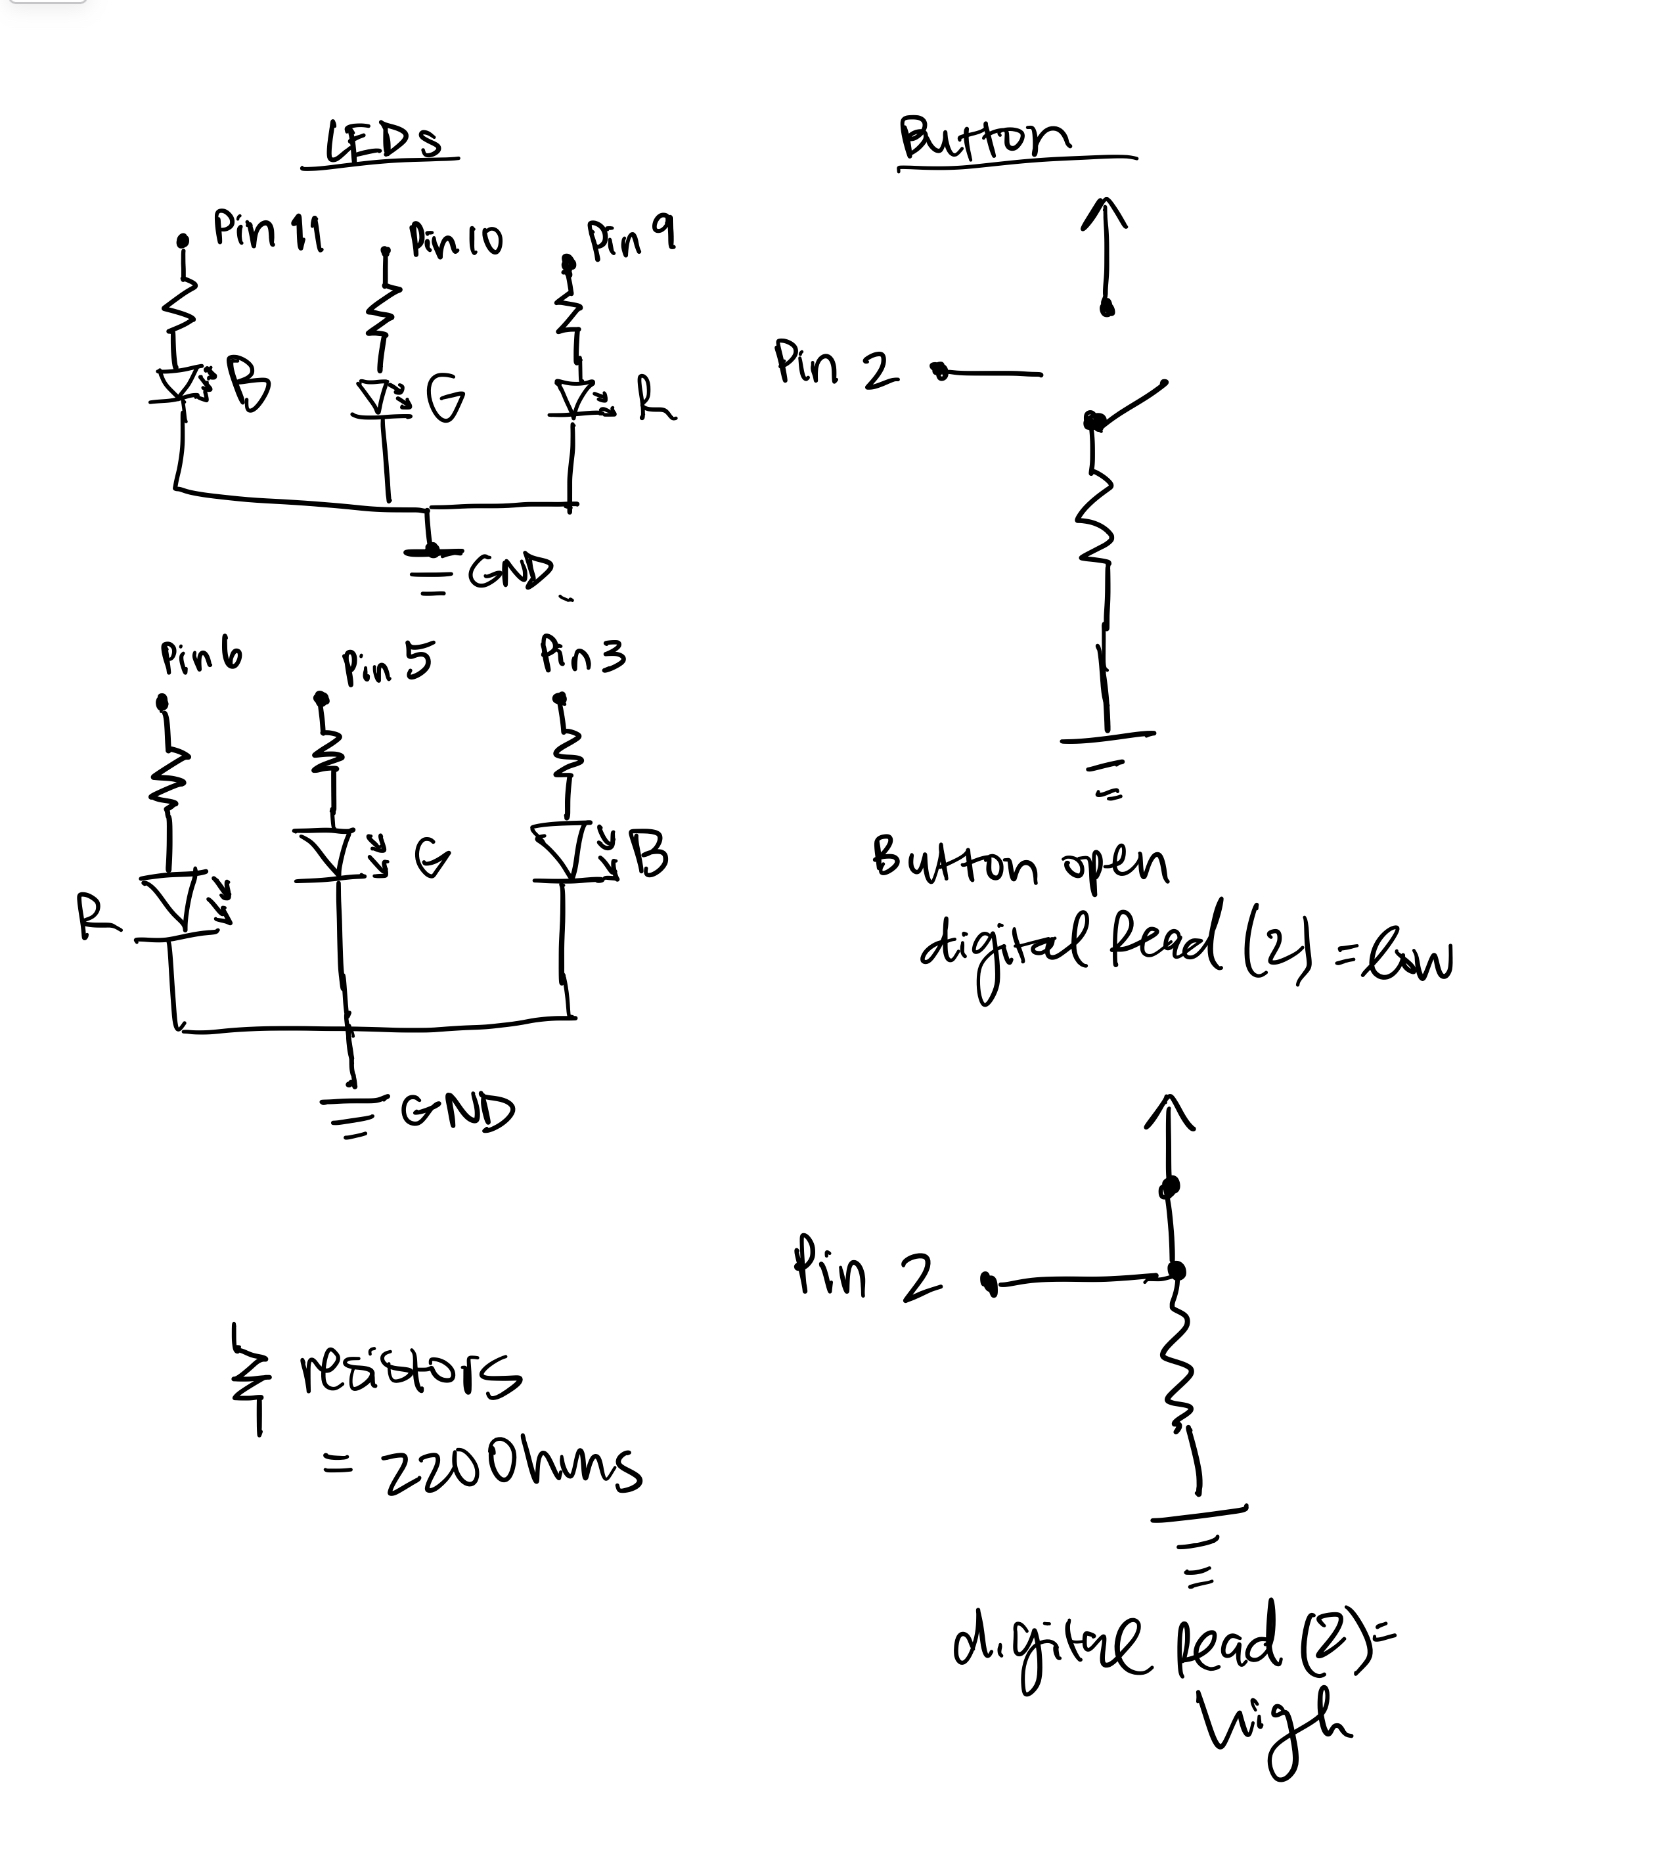 LEDs
Pin 11
Pin 10
Pin 9
B
G
R
GND
Pin 6
Pin 5
Pin 3
R
G
B
GND
resistors
= 220 Ohms
Button
Pin 2
Button open
digital Read (2) = low
Pin 2
digital Read (2) =
high